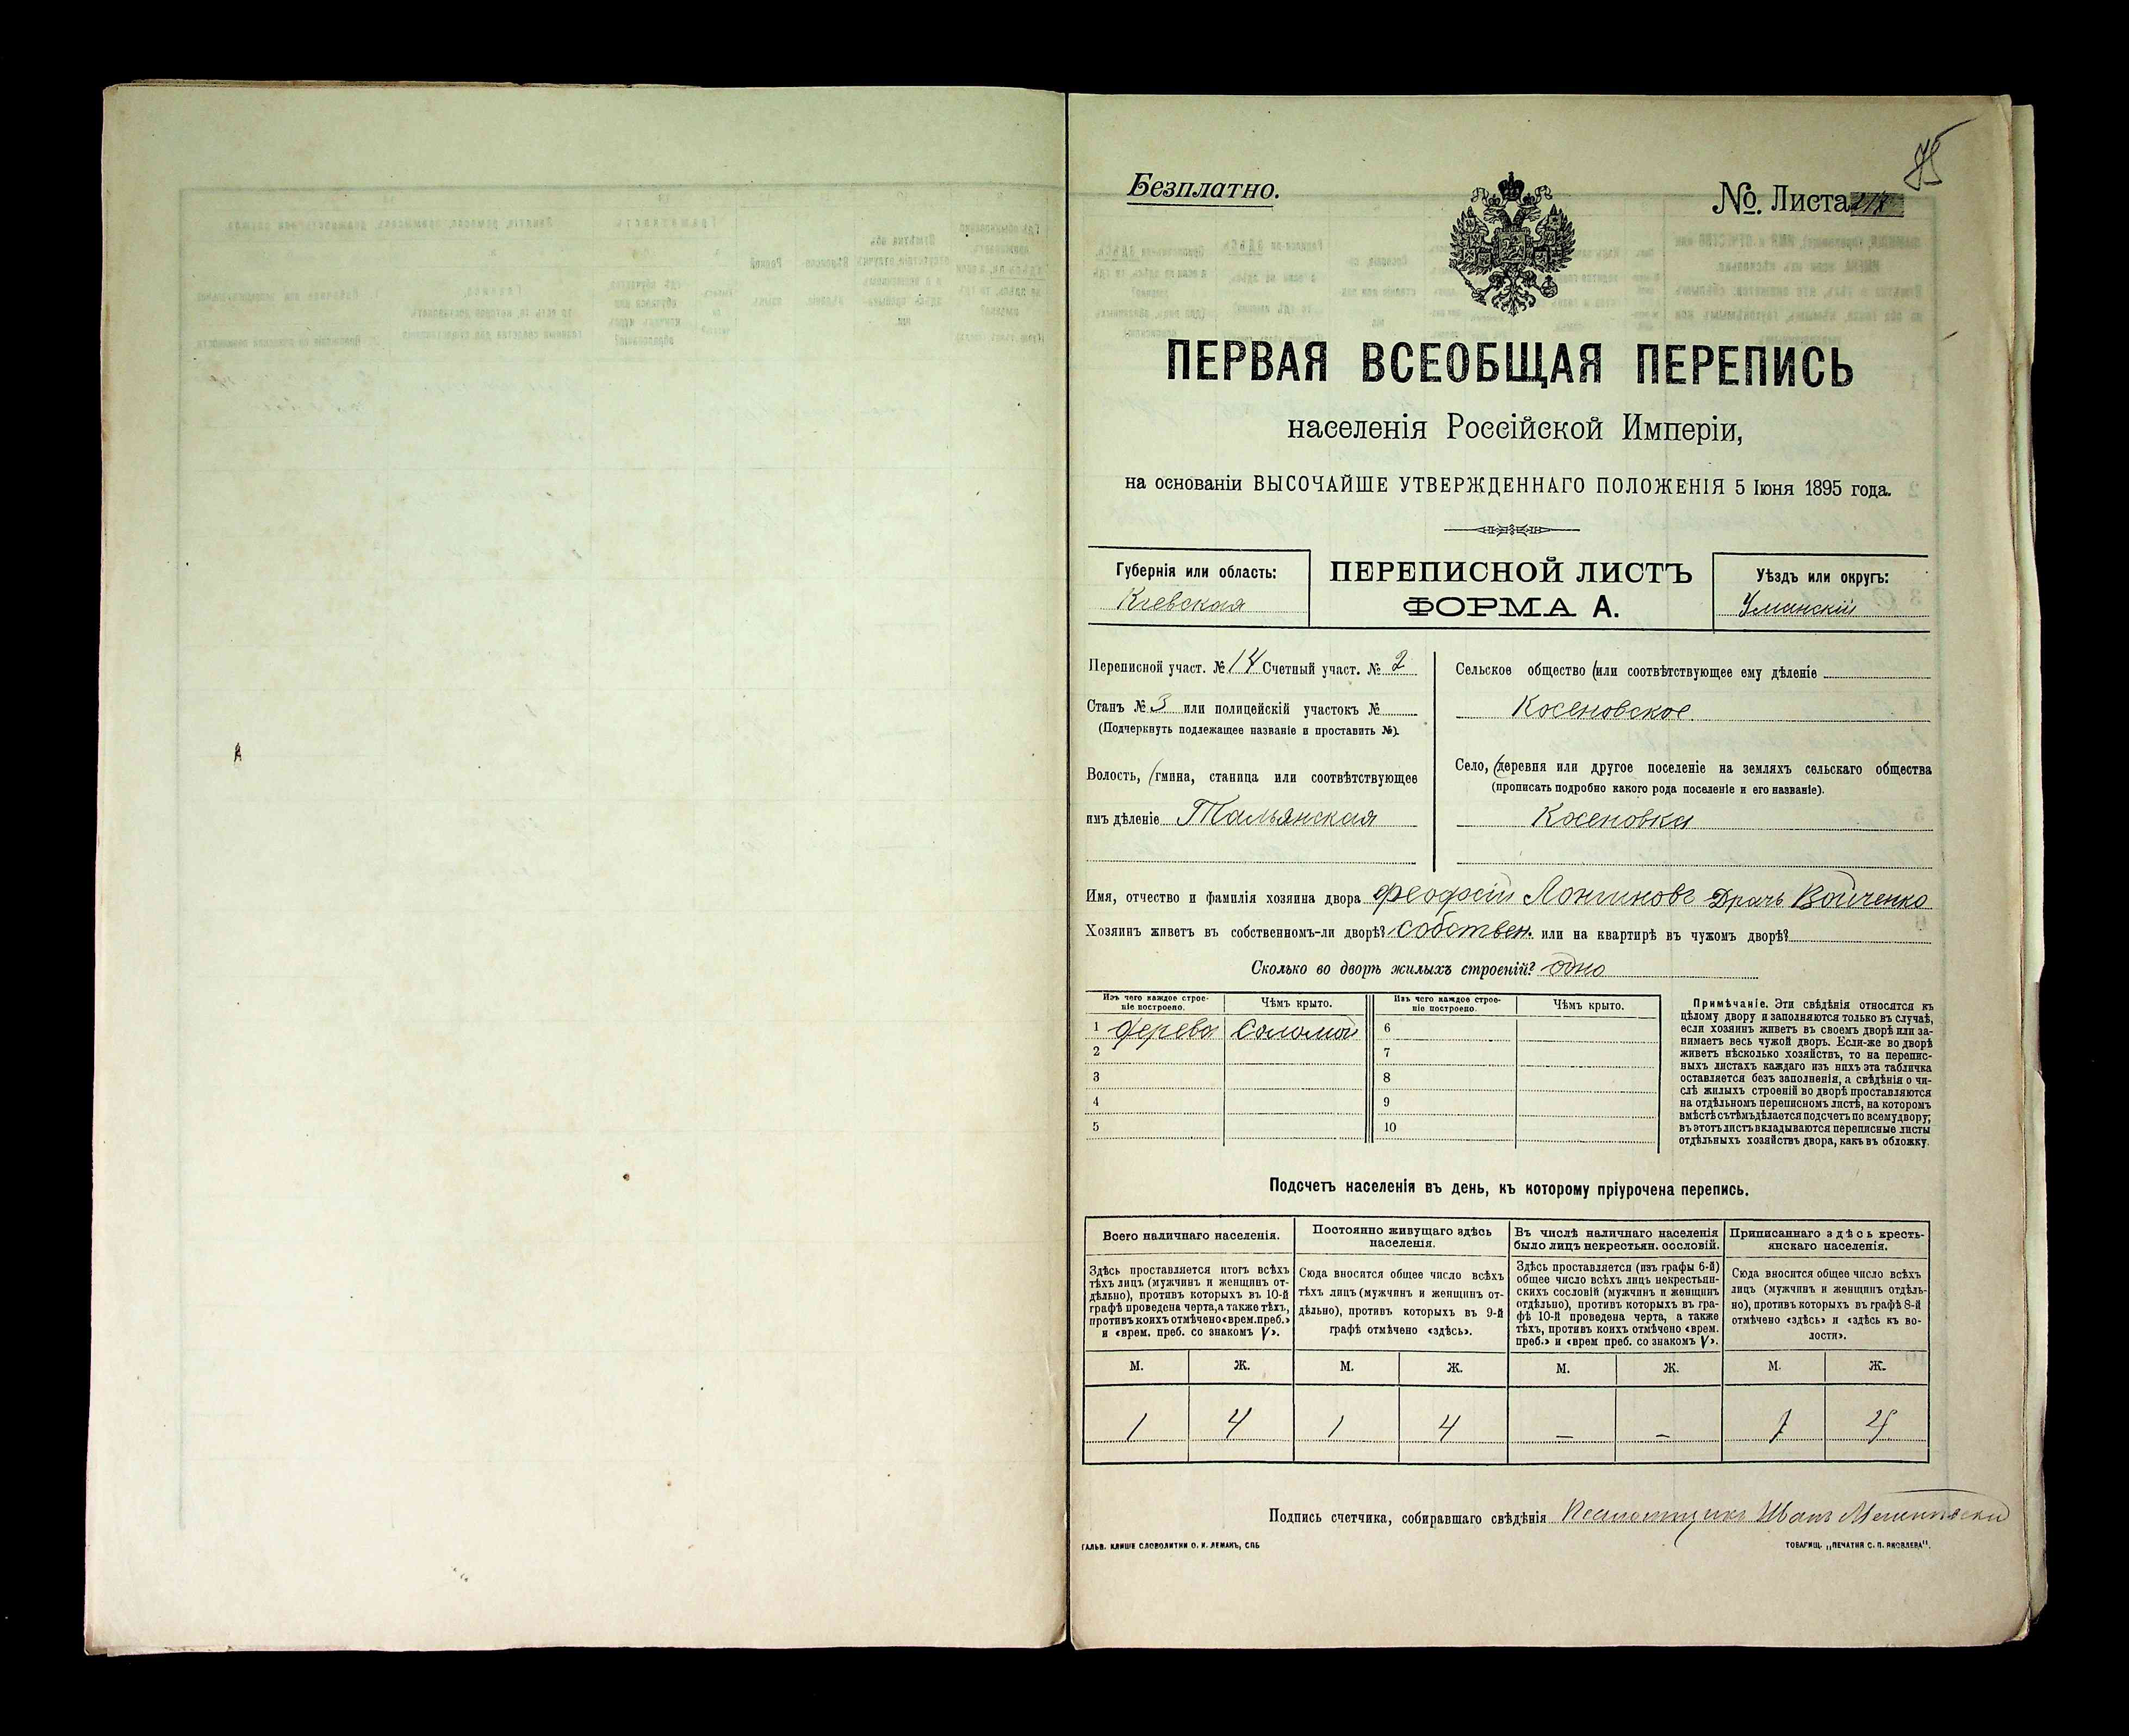 Безплатно.
№. Листа
ПЕРВАЯ ВСЕОБЩАЯ ПЕРЕПИСЬ
населенія Россійской Имперіи,
на основаніи ВЫСОЧАЙШЕ УТВЕРЖДЕННАГО ПОЛОЖЕНІЯ 5 Іюня 1895 года.
Губернія или область:
Кіевская
ПЕРЕПИСНОЙ ЛИСТЪ
ФОРМА А.
Уѣздъ или округъ:
Уманскій
Переписной участ. № 14 Счетный участ. № 2
Станъ № 3 или полицейскій участокъ №
(Подчеркнуть подлежащее названіе и проставить №).
Волость, (гмина, станица или соотвѣтствующее
имъ дѣленіе Тальянская
Сельское общество (или соотвѣтствующее ему дѣленіе
Косеновское
Село, (деревня или другое поселеніе на земляхъ сельскаго общества
(прописать подробно какого рода поселеніе и его названіе).
Косеновка
Имя, отчество и фамилія хозяина двора Лонгиновъ Драчъ Войченко
Хозяинъ живетъ въ собственномъ-ли дворѣ? собствен. или на квартирѣ въ чужомъ дворѣ?
Сколько во дворѣ жилыхъ строеній? одно
Изъ чего каждое строе-
ніе построено.
Чѣмъ крыто.
Изъ чего каждое строе-
ніе построено.
Чѣмъ крыто.
1 дерева Соломой 6
2 7
3 8
4 9
5 10
Примѣчаніе. Эти свѣдѣнія относятся къ
цѣлому двору и заполняются только въ случаѣ,
если хозяинъ живетъ въ своемъ дворѣ или за-
нимаетъ весь чужой дворъ. Если-же во дворѣ
живетъ нѣсколько хозяйствъ, то на перепис-
ныхъ листахъ каждаго изъ нихъ эта табличка
оставляется безъ заполненія, а свѣдѣнія о чи-
слѣ жилыхъ строеній во дворѣ проставляются
на отдѣльномъ переписномъ листѣ, на которомъ
вмѣстѣ съ тѣмъ дѣлается подсчетъ по всему двору;
въ этотъ листъ вкладываются переписные листы
отдѣльныхъ хозяйствъ двора, какъ въ обложку.
Подсчетъ населенія въ день, къ которому пріурочена перепись.
Всего наличнаго населенія.
Здѣсь проставляется итогъ всѣхъ
тѣхъ лицъ (мужчинъ и женщинъ от-
дѣльно), противъ которыхъ въ 10-й
графѣ проведена черта, а также тѣхъ,
противъ коихъ отмѣчено «врем. преб.»
и «врем. преб. со знакомъ V».
Постоянно живущаго здѣсь
населенія.
Сюда вносится общее число всѣхъ
тѣхъ лицъ (мужчинъ и женщинъ от-
дѣльно), противъ которыхъ въ 9-й
графѣ отмѣчено «здѣсь».
Въ числѣ наличнаго населенія
было лицъ некрестьян. сословій.
Здѣсь проставляется (изъ графы 6-й)
общее число всѣхъ лицъ некрестьян-
скихъ сословій (мужчинъ и женщинъ
отдѣльно), противъ которыхъ въ гра-
фѣ 10-й проведена черта, а также
тѣхъ, противъ коихъ отмѣчено «врем.
преб.» и «врем преб. со знакомъ V».
Приписаннаго здѣсь кресть-
янскаго населенія.
Сюда вносится общее число всѣхъ
лицъ (мужчинъ и женщинъ отдѣль-
но), противъ которыхъ въ графѣ 8-й
отмѣчено «здѣсь» и «здѣсь къ во-
лости».
М. Ж. М. Ж. М. Ж. М. Ж.
1 4 1 4 – – 1 4
Подпись счетчика, собиравшаго свѣдѣнія Псаломщикъ Иванъ
ГАЛЬВ. КЛИШЕ СЛОВОЛИТНИ О. И. ЛЕМАНЪ, СПБ
ТОВАРИЩ. „ПЕЧАТНЯ С. П. ЯКОВЛЕВА".